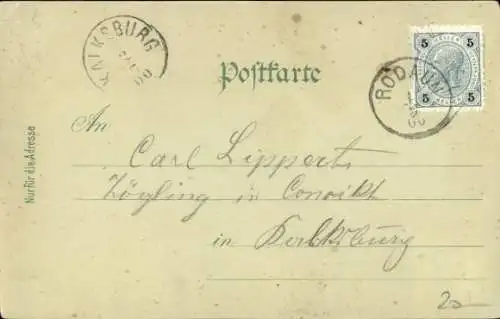 KALKSBURG
00
Postkarte
5 5
5 5
RODAUN
00
An
Carl Lippert
Zögling in Convikt
in Kalksburg
Nur für die Adresse
20